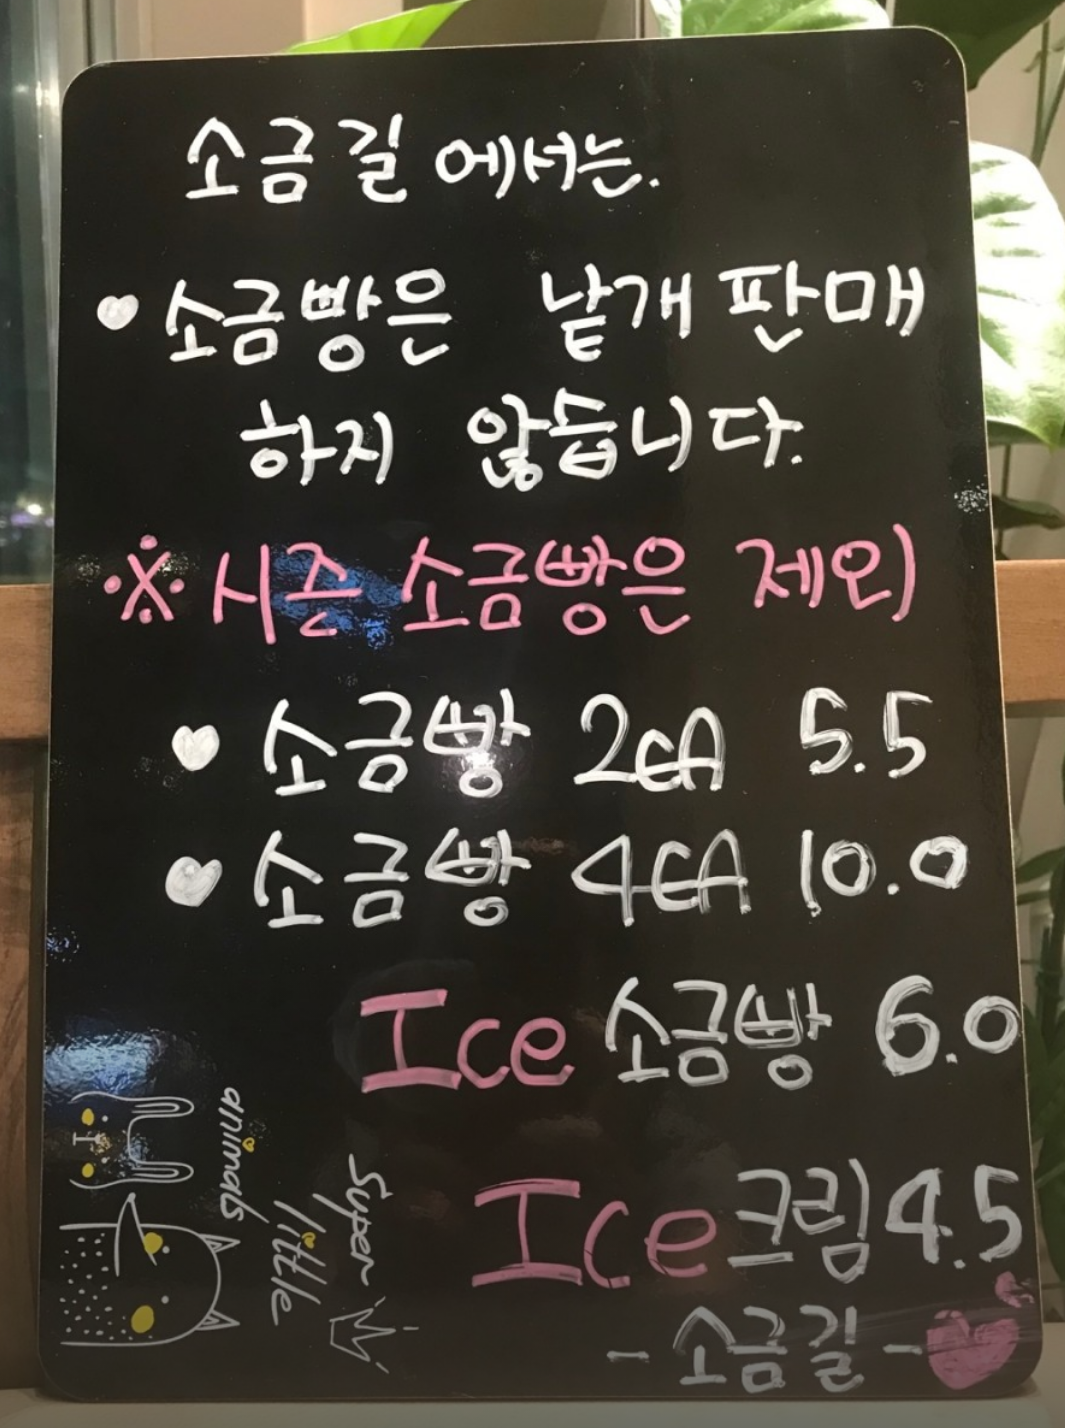 소금길에서는.
소금빵은 낱개 판매
하지 않습니다.
※시즌 소금빵은 제외
소금빵 2EA 5.5
소금빵 4EA 10.0
Ice 소금빵 6.0
Ice크림 4.5
-소금길-
Super
little
animals